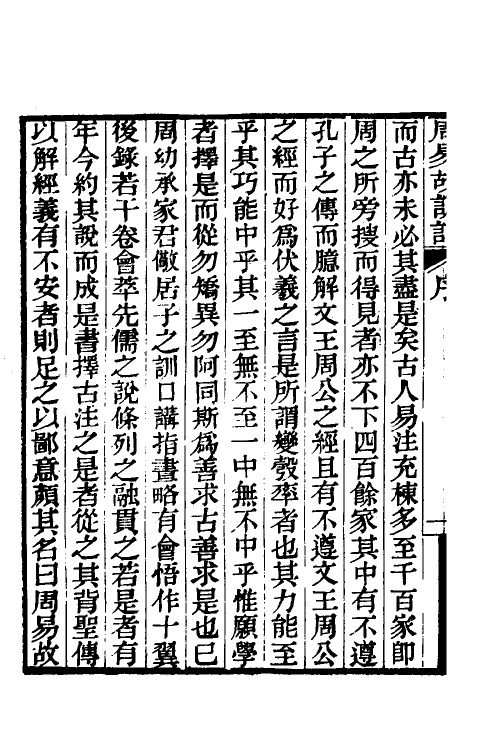 周易故訓訂 序 一
而古亦未必其盡是矣古人易注充棟多至千百家卽
周之所旁搜而得見者亦不下四百餘家其中有不遵
孔子之傳而臆解文王周公之經且有不遵文王周公
之經而好爲伏羲之言是所謂變彀率者也其力能至
乎其巧能中乎其一至無不至一中無不中乎惟願學
者擇是而從勿矯異勿阿同斯爲善求古善求是也已
周幼承家君儆居子之訓口講指畫略有會悟作十翼
後錄若干卷會萃先儒之說條列之融貫之若是者有
年今約其說而成是書擇古注之是者從之其背聖傳
以解經義有不安者則足之以鄙意顏其名曰周易故